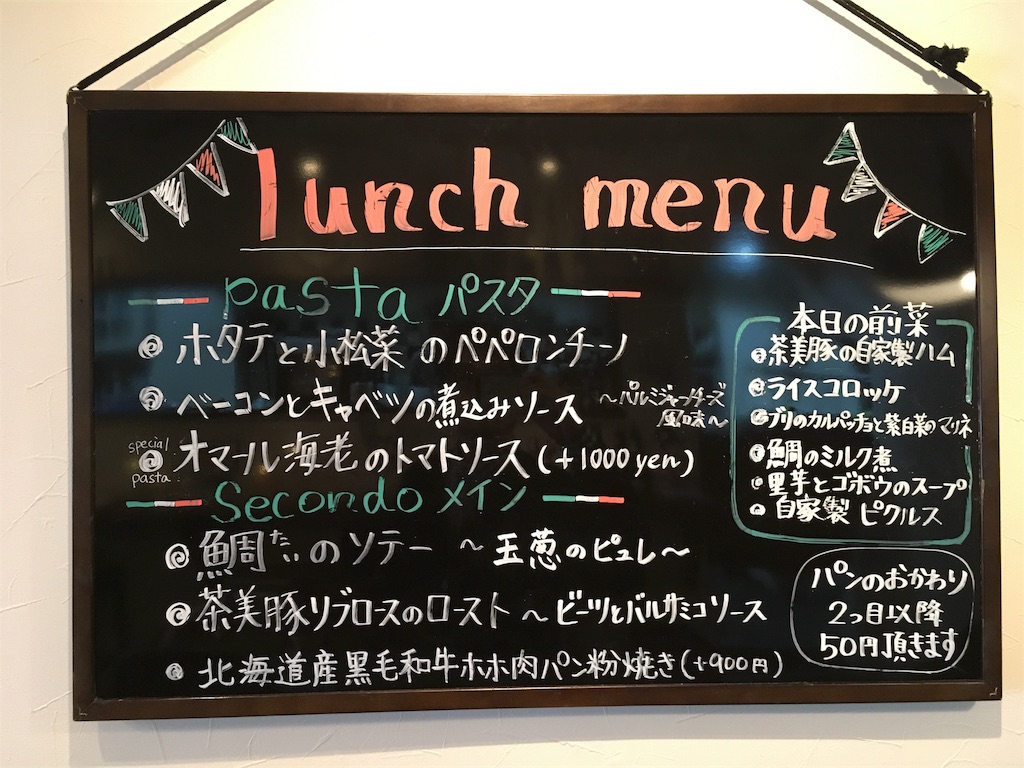 lunch menu
pasta パスタ
ホタテと小松菜のペペロンチーノ
ベーコンとキャベツの煮込みソース
～パルミジャーノチーズ
風味～
special
pasta
オマール海老のトマトソース(+1000yen)
Secondo メイン
鯛たいのソテー ～玉葱のピュレ～
茶美豚リブロースのロースト～ビーツとバルサミコソース
北海道産黒毛和牛ホホ肉パン粉焼き(+900円)
本日の前菜
茶美豚の自家製ハム
ライスコロッケ
ブリのカルパッチョと紫白菜のマリネ
鯛のミルク煮
里芋とゴボウのスープ
自家製 ピクルス
パンのおかわり
2つ目以降
50円頂きます